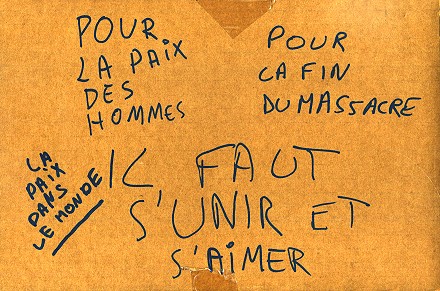 POUR
LA PAiX
DES
HOMMES
POUR
LA FIN
DU MASSACRE
LA
PAiX
DANS
LE MONDE
IL FAUT
S'UNIR ET
S'AiMER